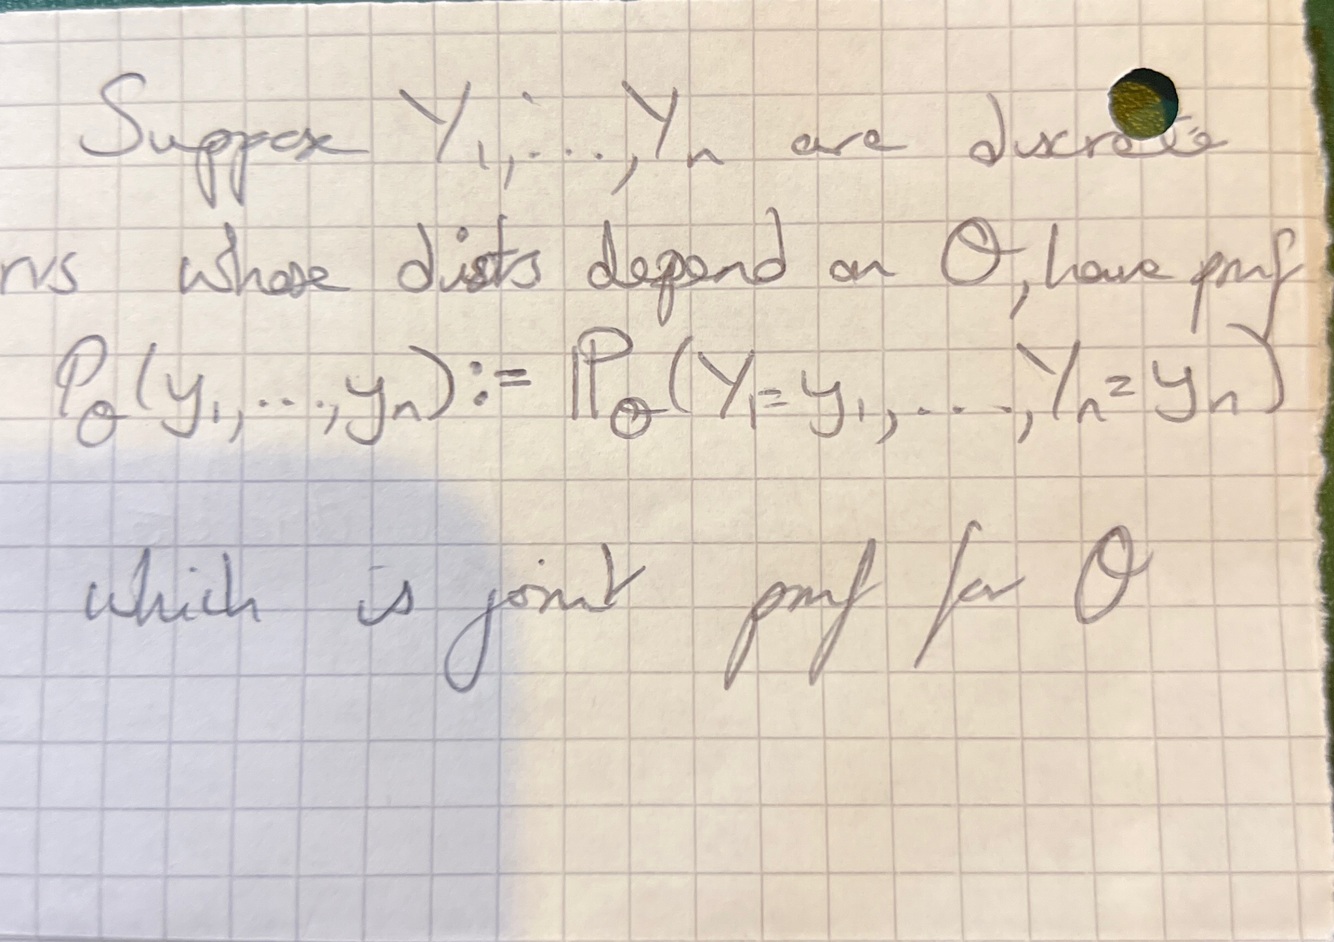 Suppose Y₁,...,Yₙ are discrete
rvs whose dists depend on θ, have pmf
P_θ(y₁,...,yₙ) := ℙ_θ(Y₁=y₁,....,Yₙ=yₙ)
which is joint pmf for θ